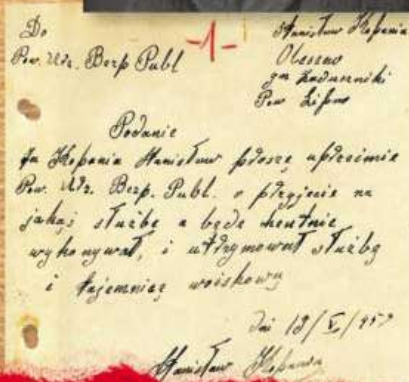 Do
Pow. Urz. Bezp Publ
-1-
Stanisław Kopania
Oleszno
gm Kadurniki
Pow Lipno
Podanie
Ja Kopania Stanisław proszę uprzeimie
Pow. Urz. Bezp. Publ. o przyjenie na
jakaj służbe a będe hentnie
wykonywał, i utrzymował służbę
i tajemnicę woiskową
Dni 18/V/195
Stanisław Kopania